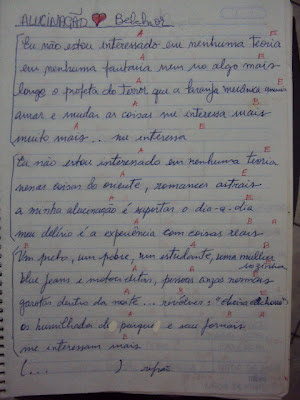 ALUCINAÇÃO ❤ Belchior
A E
Eu não estou interessado em nenhuma teoria
A E
em nenhuma fantasia nem no algo mais
A E
longe o profeta do terror que a laranja mecânica anuncia
B E
amar e mudar as coisas me interessa mais
A B E
muito mais... me interessa
A E
Eu não estou interessado em nenhuma teoria
A E
nessas coisas do oriente, romances astrais
A E
a minha alucinação é suportar o dia-a-dia
B
meu delírio é a experiência com coisas reais
B A B
Um preto, um pobre, um estudante, uma mulher sozinha
A B
blue jeans e motocicletas, pessoas cinzas normais
A B A
garotas dentro da noite... revólver: "cheira cachorro"
A B
os humilhados do parque e seus jornais
B
me interessam mais
(... ) refrão